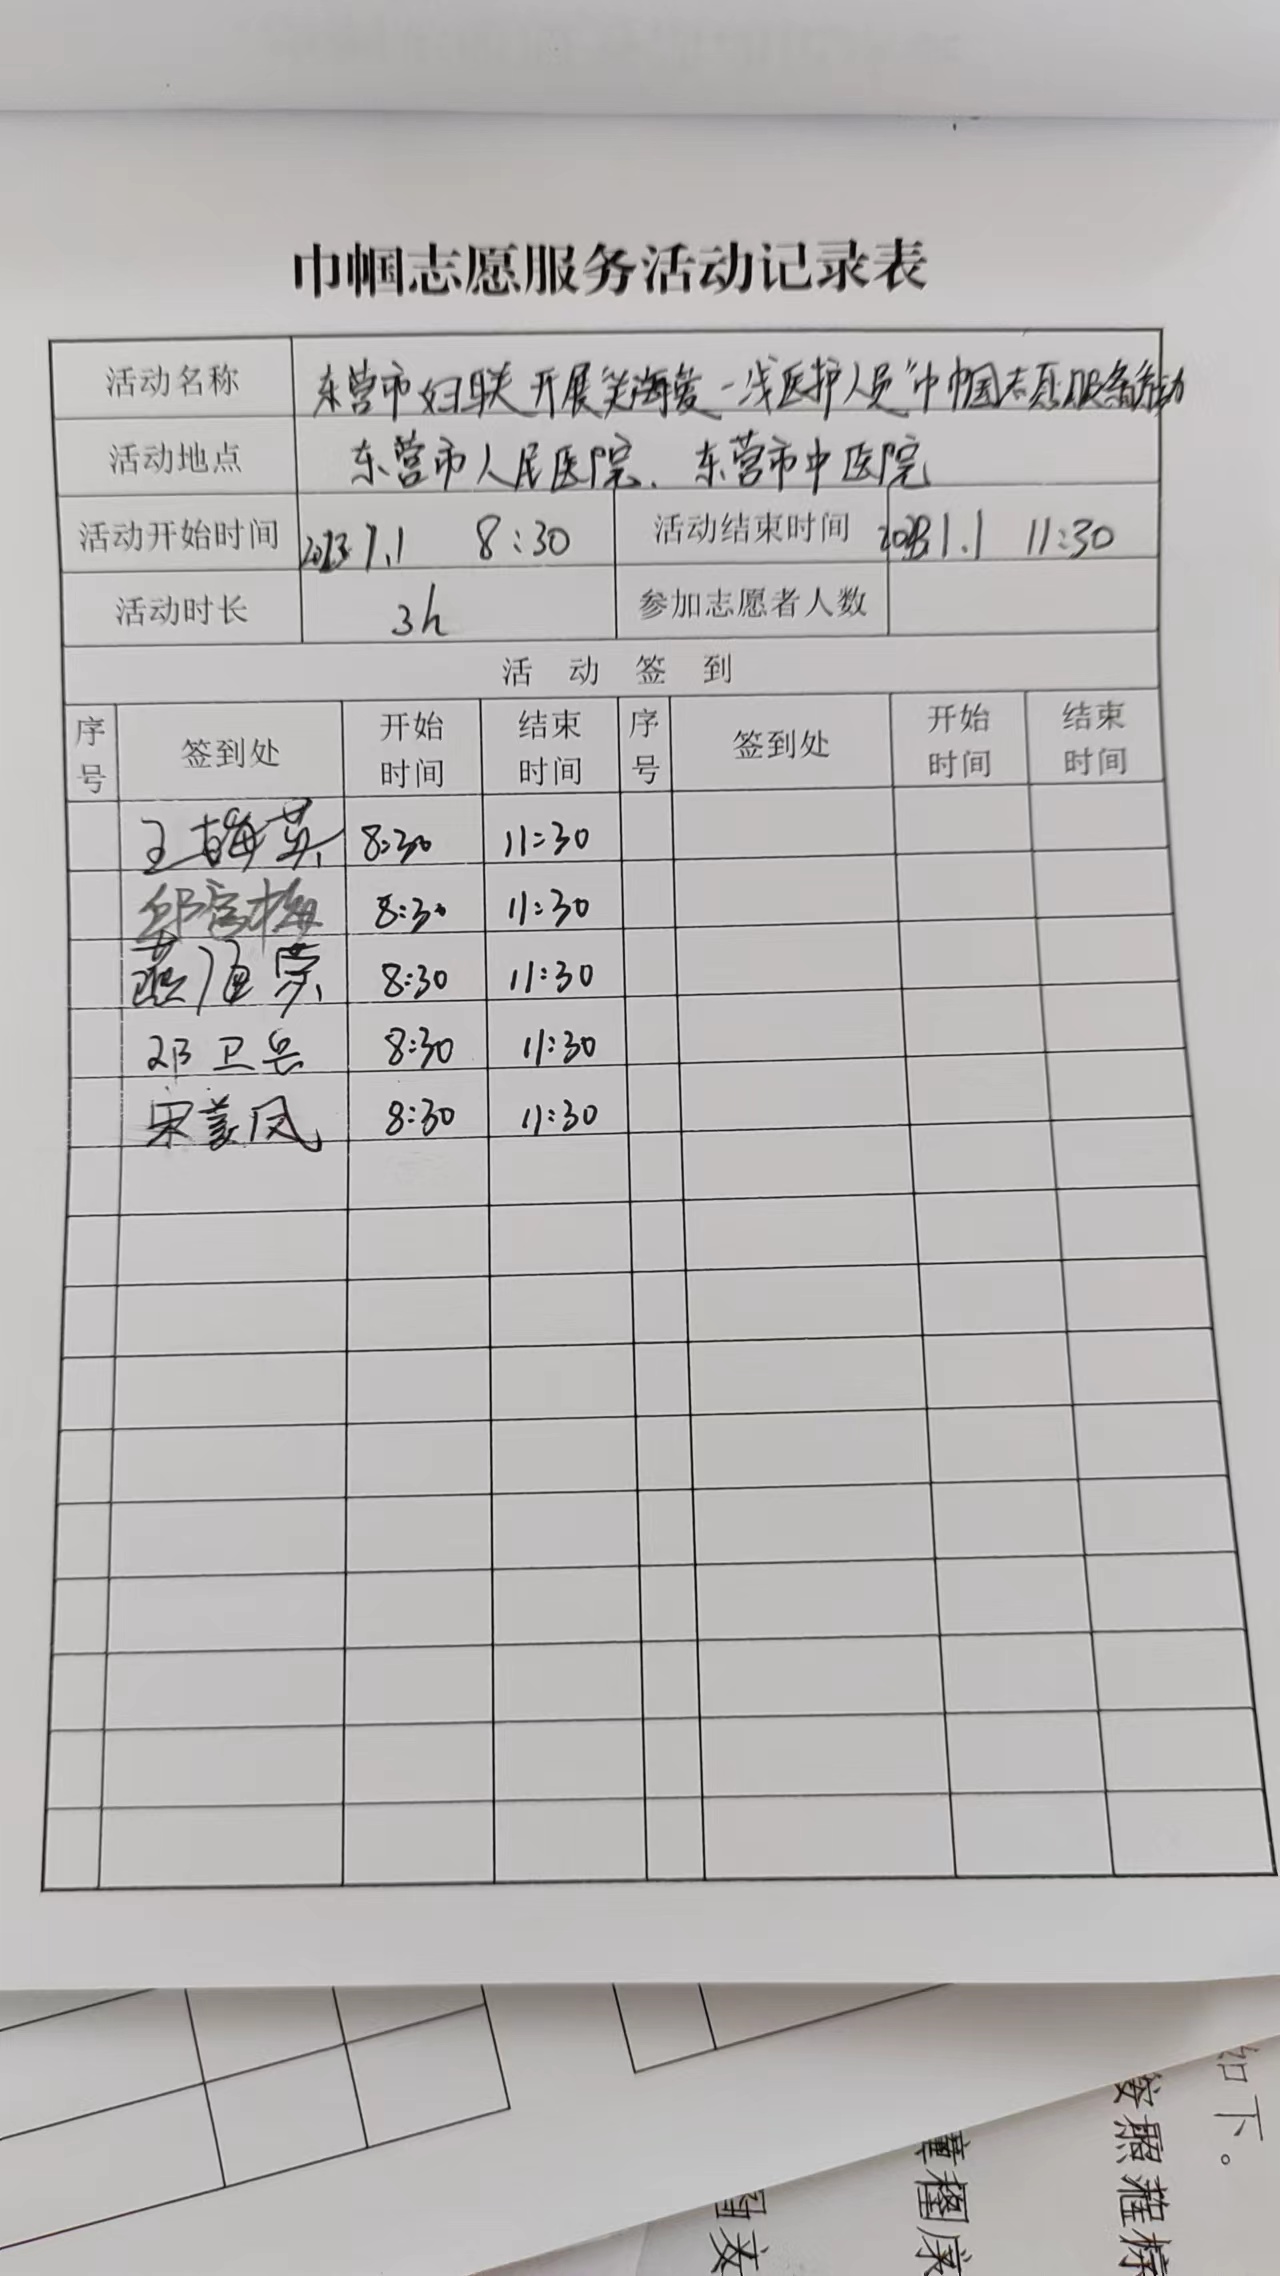 巾帼志愿服务活动记录表
活动名称 东营市妇联开展"关爱一线医护人员"巾帼志愿服务活动
活动地点 东营市人民医院、东营市中医院
活动开始时间 2023.1.1 8:30 活动结束时间 2023.1.1 11:30
活动时长 3h 参加志愿者人数
活动签到
序号 签到处 开始时间 结束时间 序号 签到处 开始时间 结束时间
王梅英 8:30 11:30
邱富梅 8:30 11:30
燕海荣 8:30 11:30
邓卫兵 8:30 11:30
宋美凤 8:30 11:30
如下。